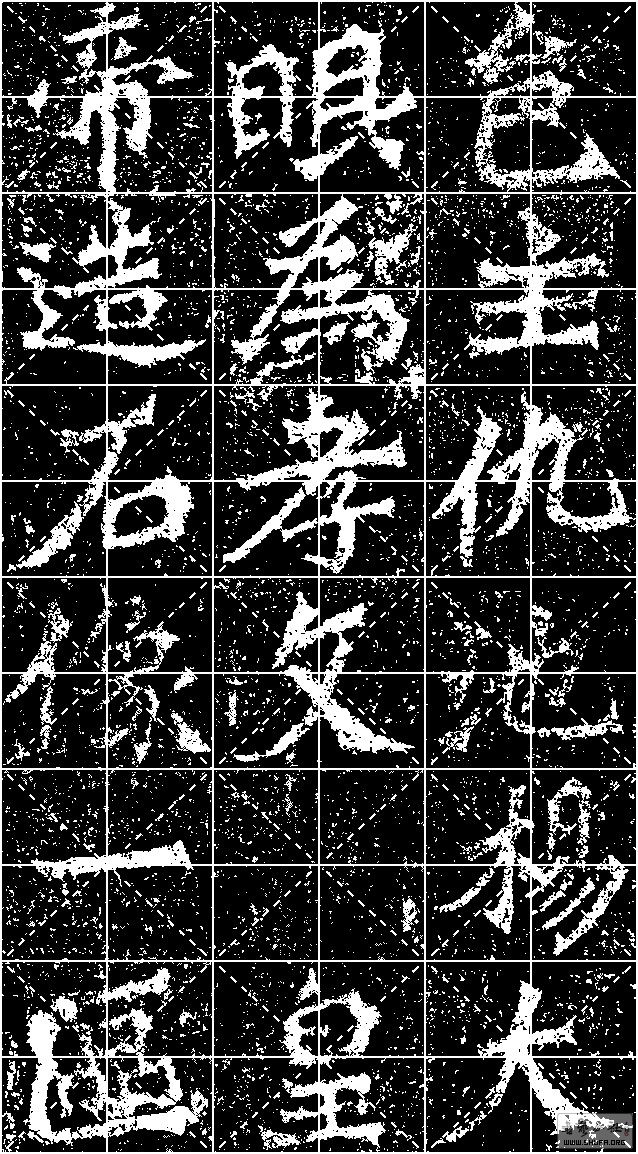 邑主仇池楊大
眼為孝文皇
帝造石像一區
WWW.SHUFA.ORG